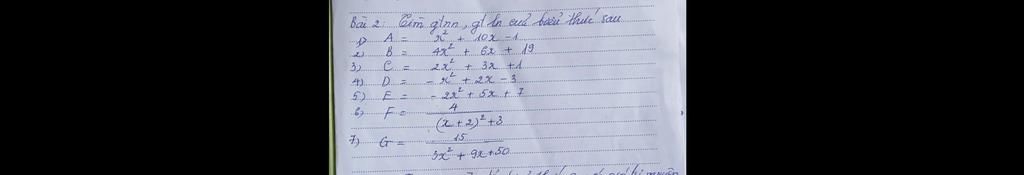 Bài 2: Tìm gtnn, gtln của biểu thức sau
1) A = x² + 10x - 1
2) B = 4x² + 6x + 19
3) C = 2x² + 3x + 1
4) D = - x² + 2x - 3
5) E = - 2x² + 5x + 7
6) F = 4 / (x + 2)² + 3
7) G = 15 / 3x² + 9x + 50